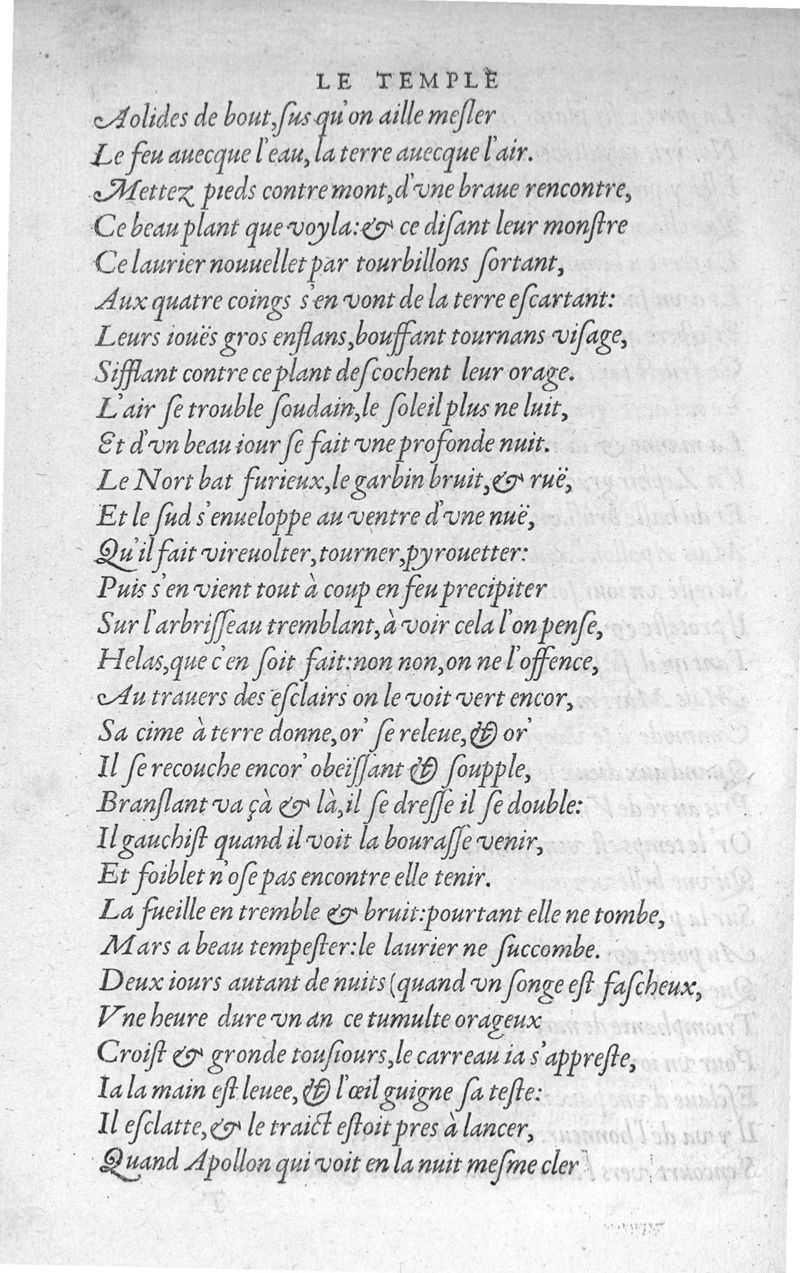 LE TEMPLE
Aolides de bout, ſus qu'on aille meſler
Le feu auecque l'eau, la terre auecque l'air.
Mettez pieds contre mont, d'vne braue rencontre,
Ce beau plant que voyla: & ce diſant leur monſtre
Ce laurier nouuellet par tourbillons ſortant,
Aux quatre coings s'en vont de la terre eſcartant:
Leurs iouës gros enflans, bouffant tournans viſage,
Sifflant contre ce plant deſcochent leur orage.
L'air ſe trouble ſoudain, le ſoleil plus ne luit,
Et d'vn beau iour ſe fait vne profonde nuit.
Le Nort bat furieux, le garbin bruit, & ruë,
Et le ſud s'enueloppe au ventre d'vne nuë,
Qu'il fait vireuolter, tourner, pyrouetter:
Puis s'en vient tout à coup en feu precipiter
Sur l'arbriſſeau tremblant, à voir cela l'on penſe,
Helas, que c'en ſoit fait: non non, on ne l'offence,
Au trauers des eſclairs on le voit vert encor,
Sa cime à terre donne, or' ſe releue, & or'
Il ſe recouche encor' obeïſſant & ſoupple,
Branſlant va çà & là, il ſe dreſſe il ſe double:
Il gauchiſt quand il voit la bouraſſe venir,
Et foiblet n'oſe pas encontre elle tenir.
La fueille en tremble & bruit: pourtant elle ne tombe,
Mars a beau tempeſter: le laurier ne ſuccombe.
Deux iours autant de nuits (quand vn ſonge eſt faſcheux,
Vne heure dure vn an ce tumulte orageux
Croiſt & gronde touſiours, le carreau ia s'appreſte,
Ia la main eſt leuee, & l'œil guigne ſa teſte:
Il eſclatte, & le traict eſtoit pres à lancer,
Quand Apollon qui voit en la nuit meſme cler